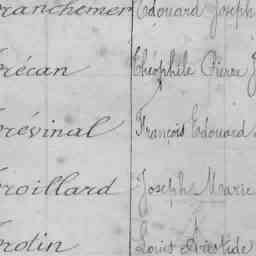 ranchemer Edouard Joseph
récan Théophile Pierre J
révinal François Edouard
roillard Joseph Marie
rotin Louis Aristide